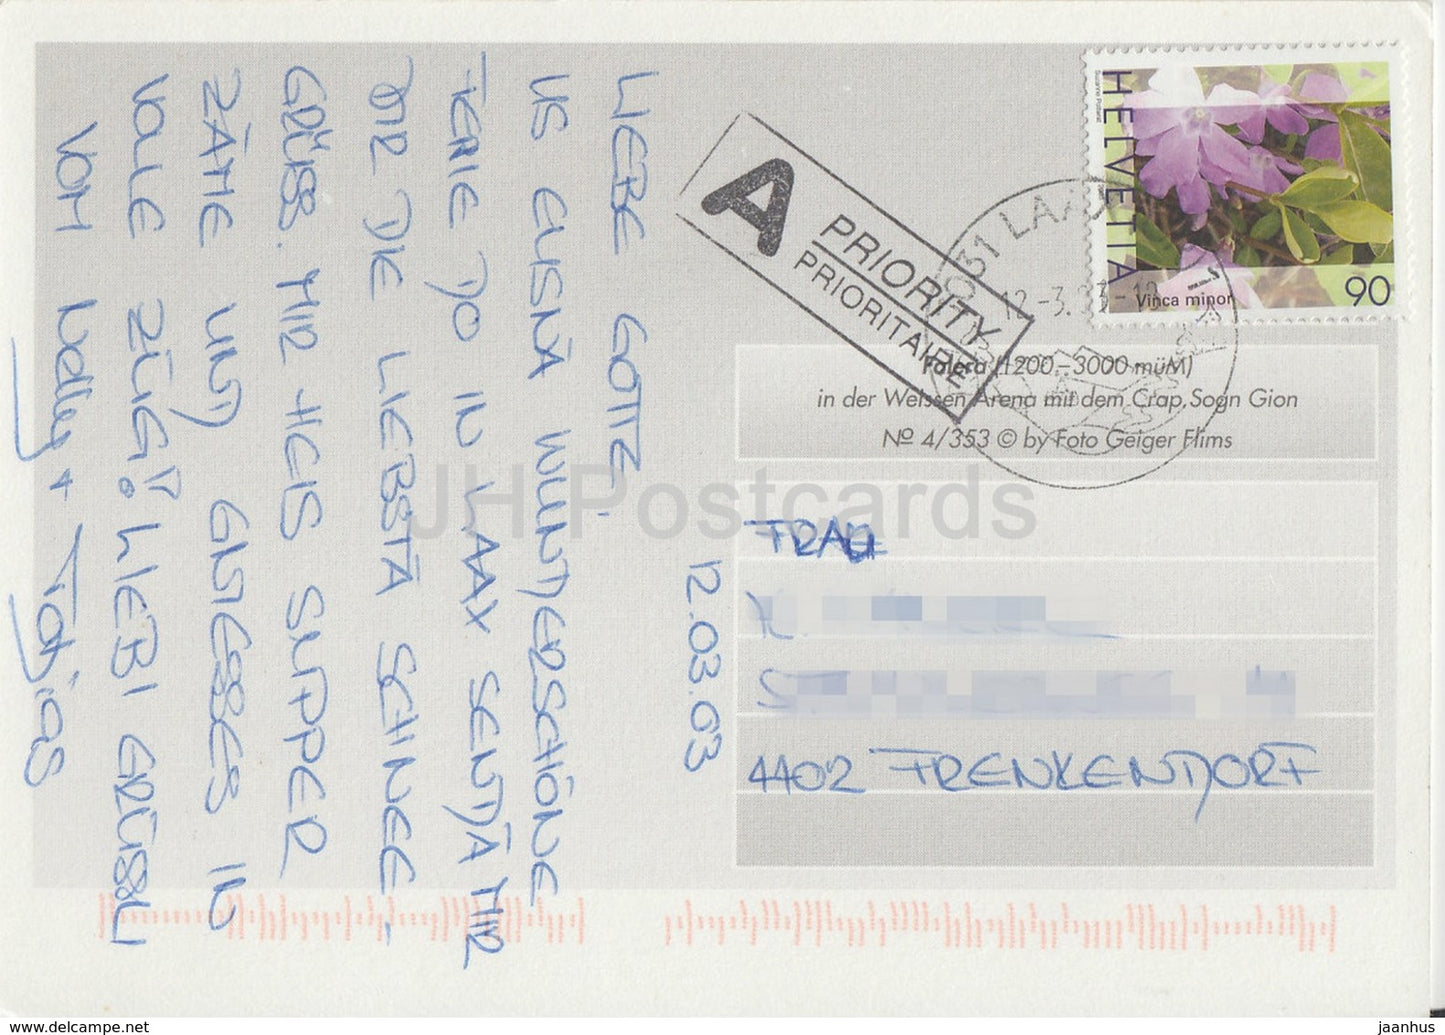 12.03.03
LIEBE GOTTE,
US EUSNÄ WUNDERSCHÖNE
FERIE DO IN LAAX SENDÄ MIR
DIR DIE LIEBSTÄ SCHNEE-
GRÜSS. MIR HEIS SUPPER
ZÄME UND GNIESSES IN
VOLLE ZÜG! LIEBI GRÜSSLI
VOM Nelly + Tobias
A PRIORITY
PRIORITAIRE
HELVETIA
Vinca minor
90
31 LAAX
12-3.03-1
Falera (1200–3000 müM)
in der Weissen Arena mit dem Crap Sogn Gion
Nº 4/353 © by Foto Geiger Flims
FRAU
4402 FRENKENDORF
JH Postcards
jaanhus - www.delcampe.net